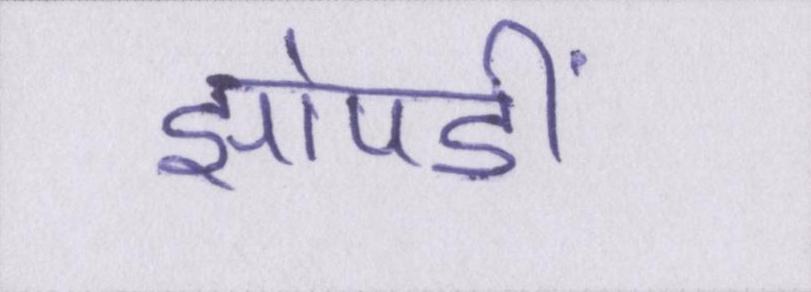 झोपडीं